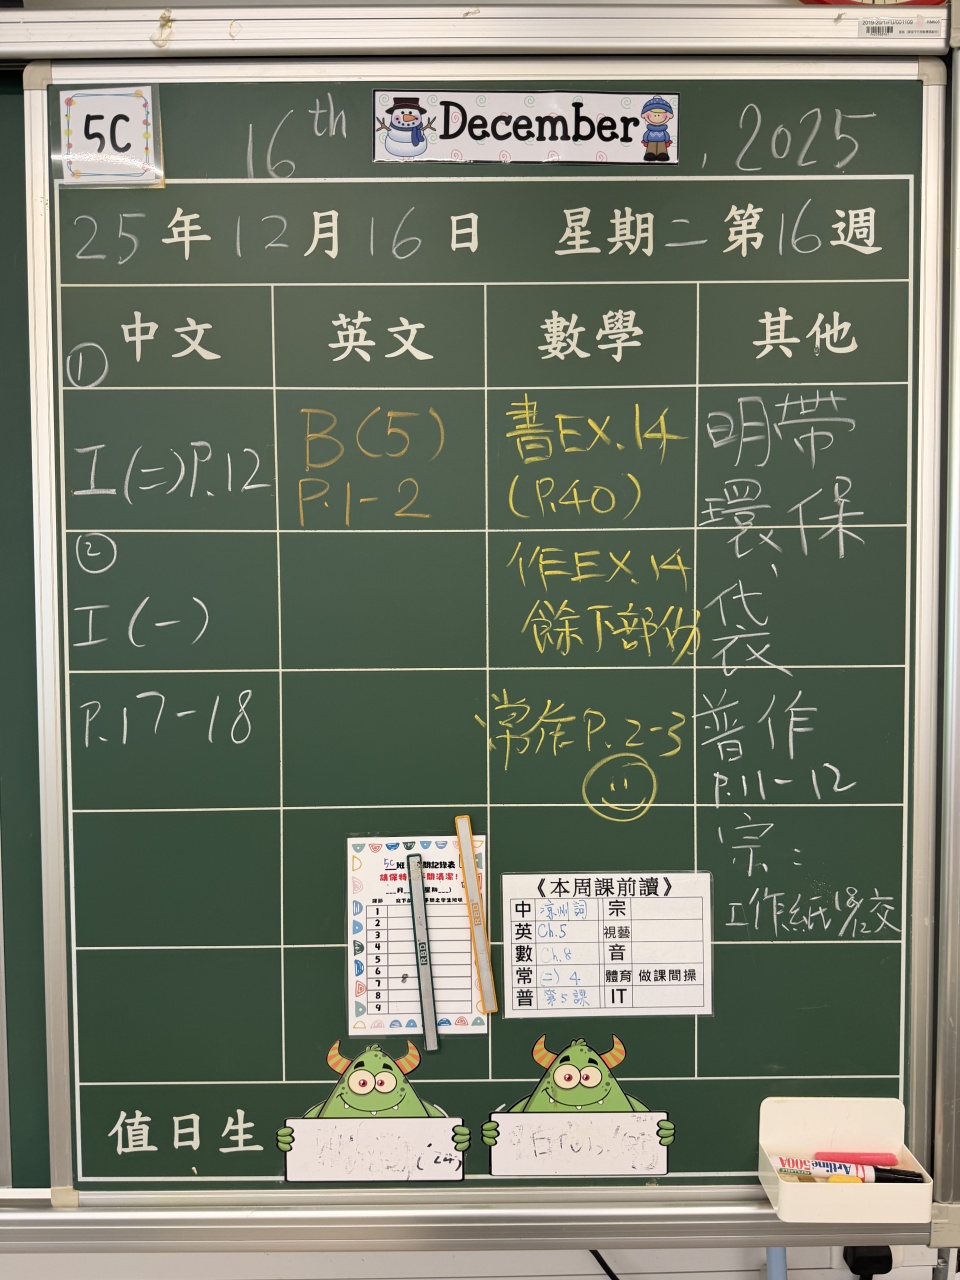 5C
16th December, 2025
25年12月16日 星期二 第16週
中文 英文 數學 其他
①
I(二)P.12
B(5)
P.1-2
書EX.14
(P.40)
明帶
環保
袋
②
I(一)
作EX.14
餘下部份
P.17-18
常作P.2-3
普作
P.11-12
宗:
工作紙
交
5C班
1
2
3
4
5
6
7
8
9
《本周課前讀》
中 涼州詞 宗
英 Ch.5 視藝
數 Ch.8 音
常 (二) 4 體育 做課間操
普 第5課 IT
值日生
(24)
Artline
500A